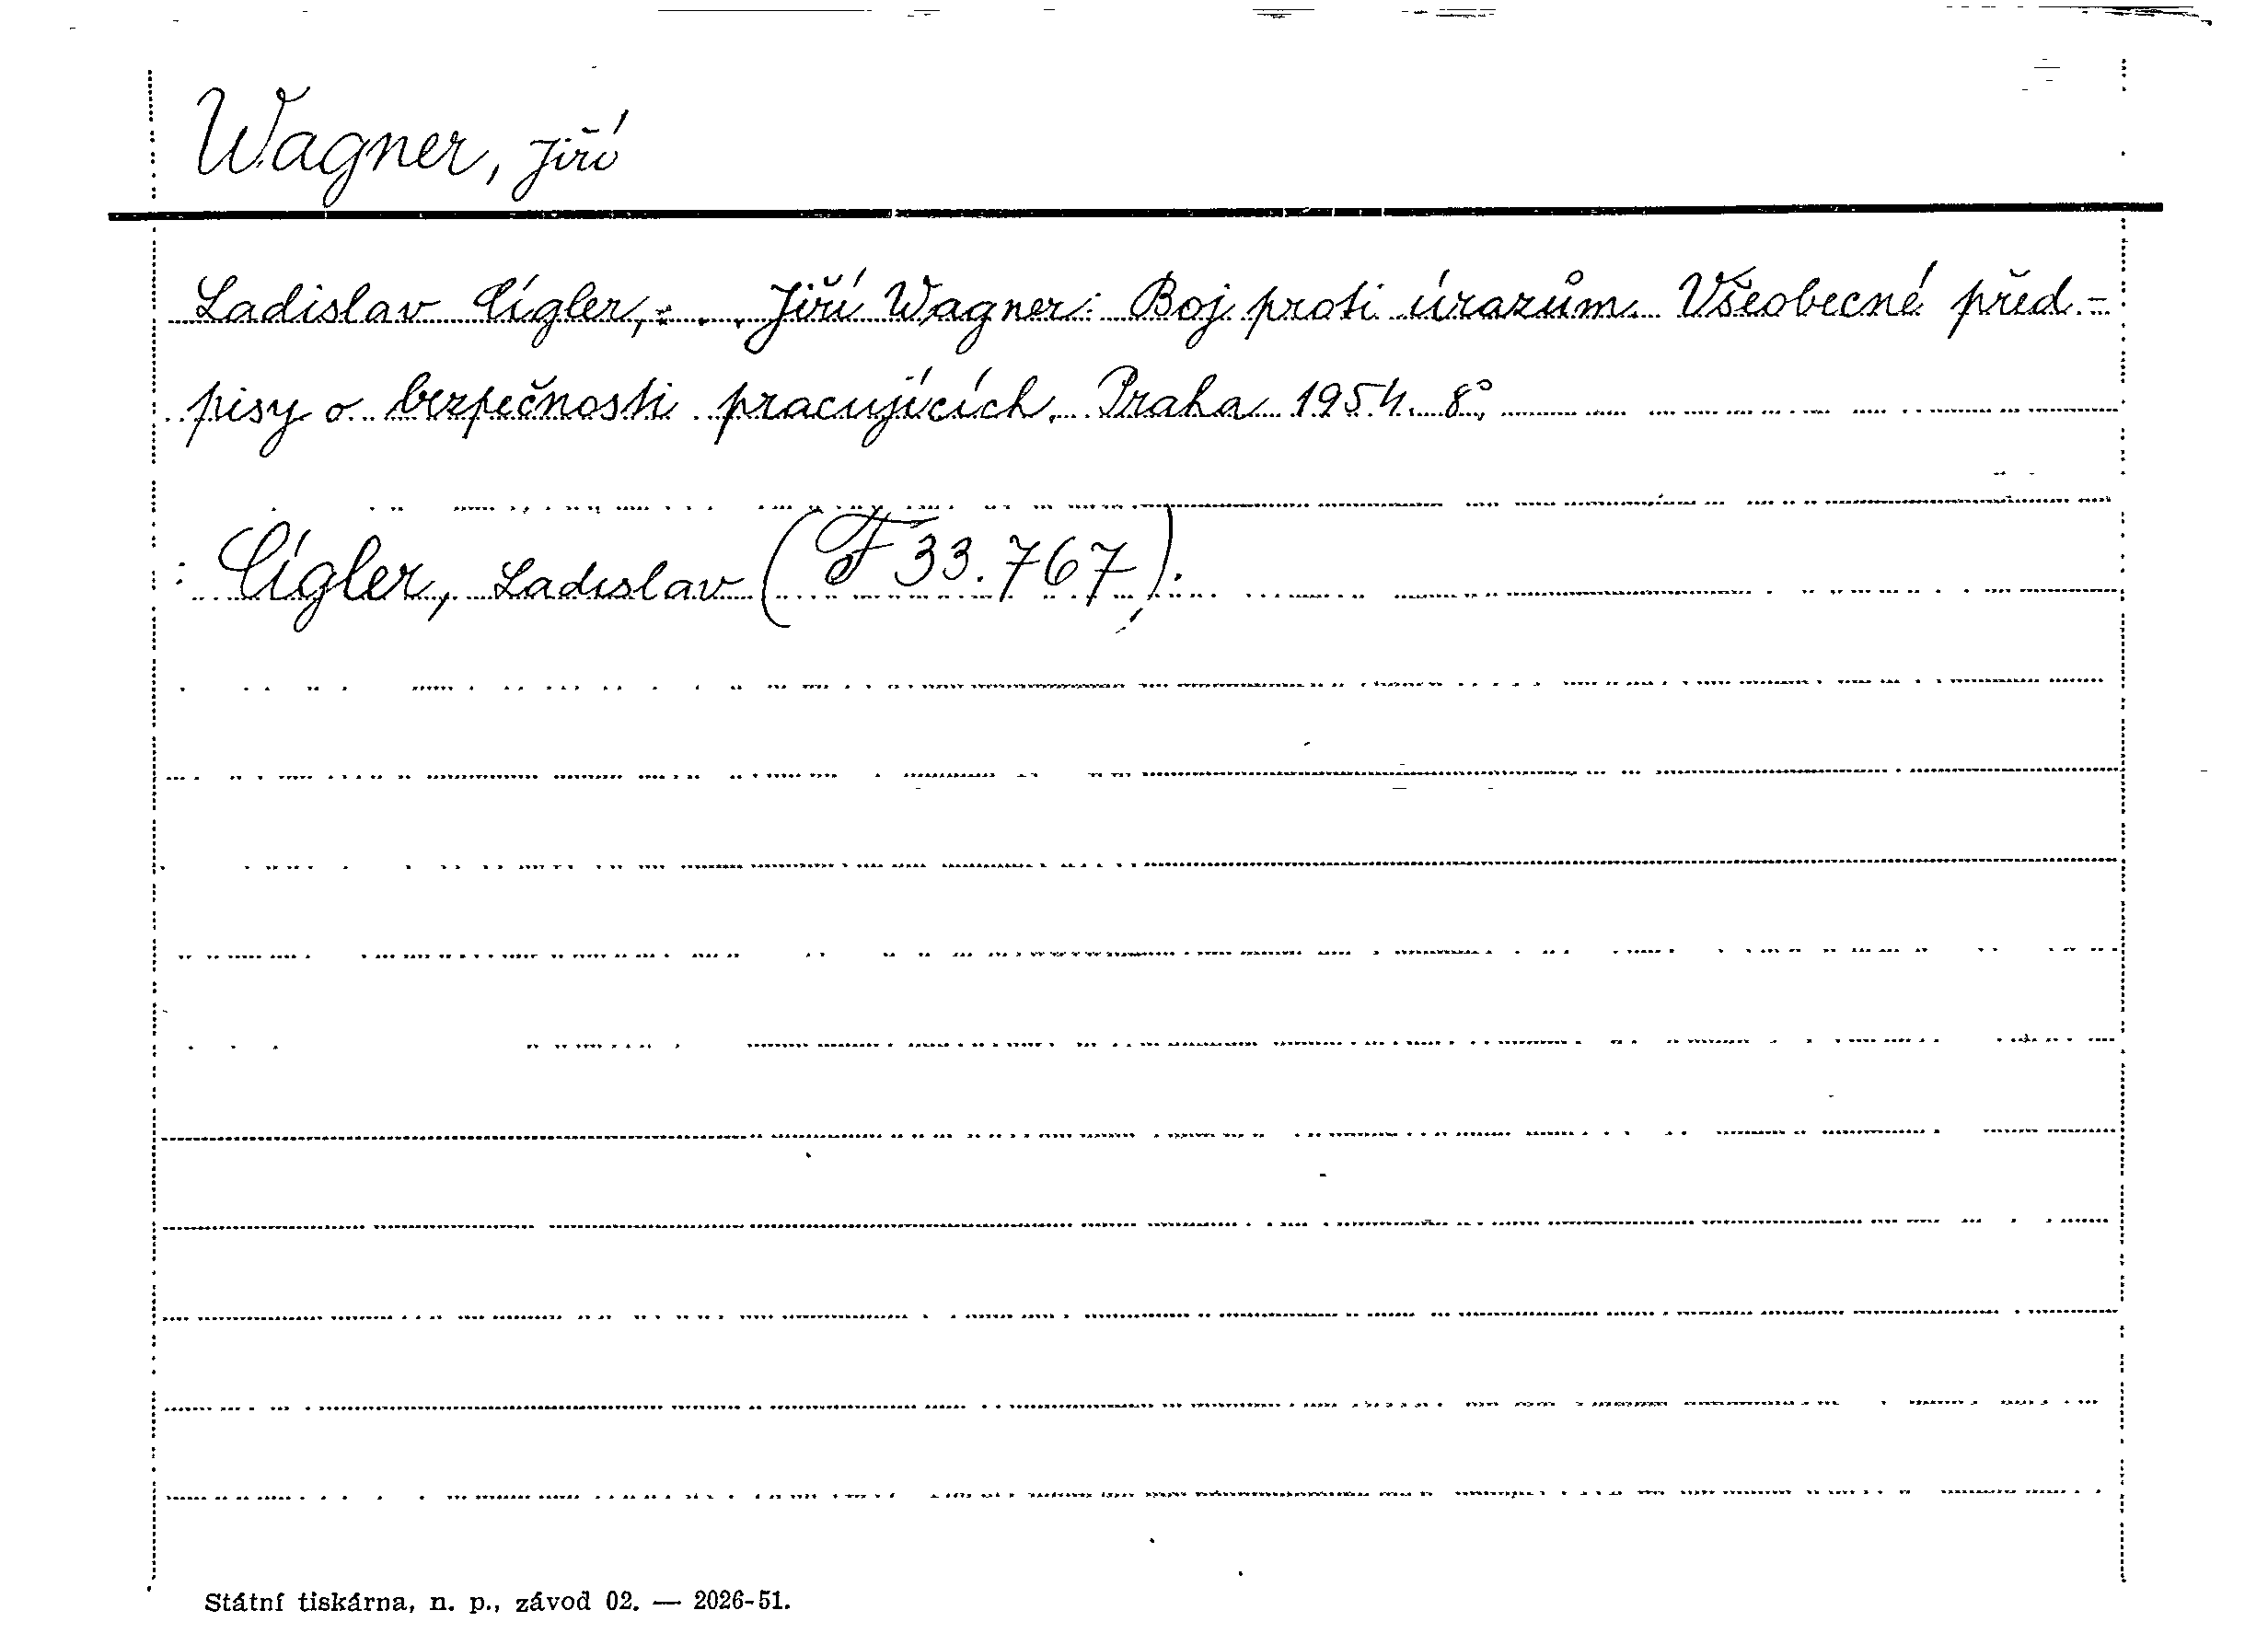 Wagner, Jiří
Ladislav Cígler, : . . Jiří Wagner: Boj proti úrazům. Všeobecné před-
pisy o bezpečnosti pracujících. Praha 1954. 8°.
: Cígler, Ladislav (F 33.767).
Státní tiskárna, n. p., závod 02. — 2026-51.